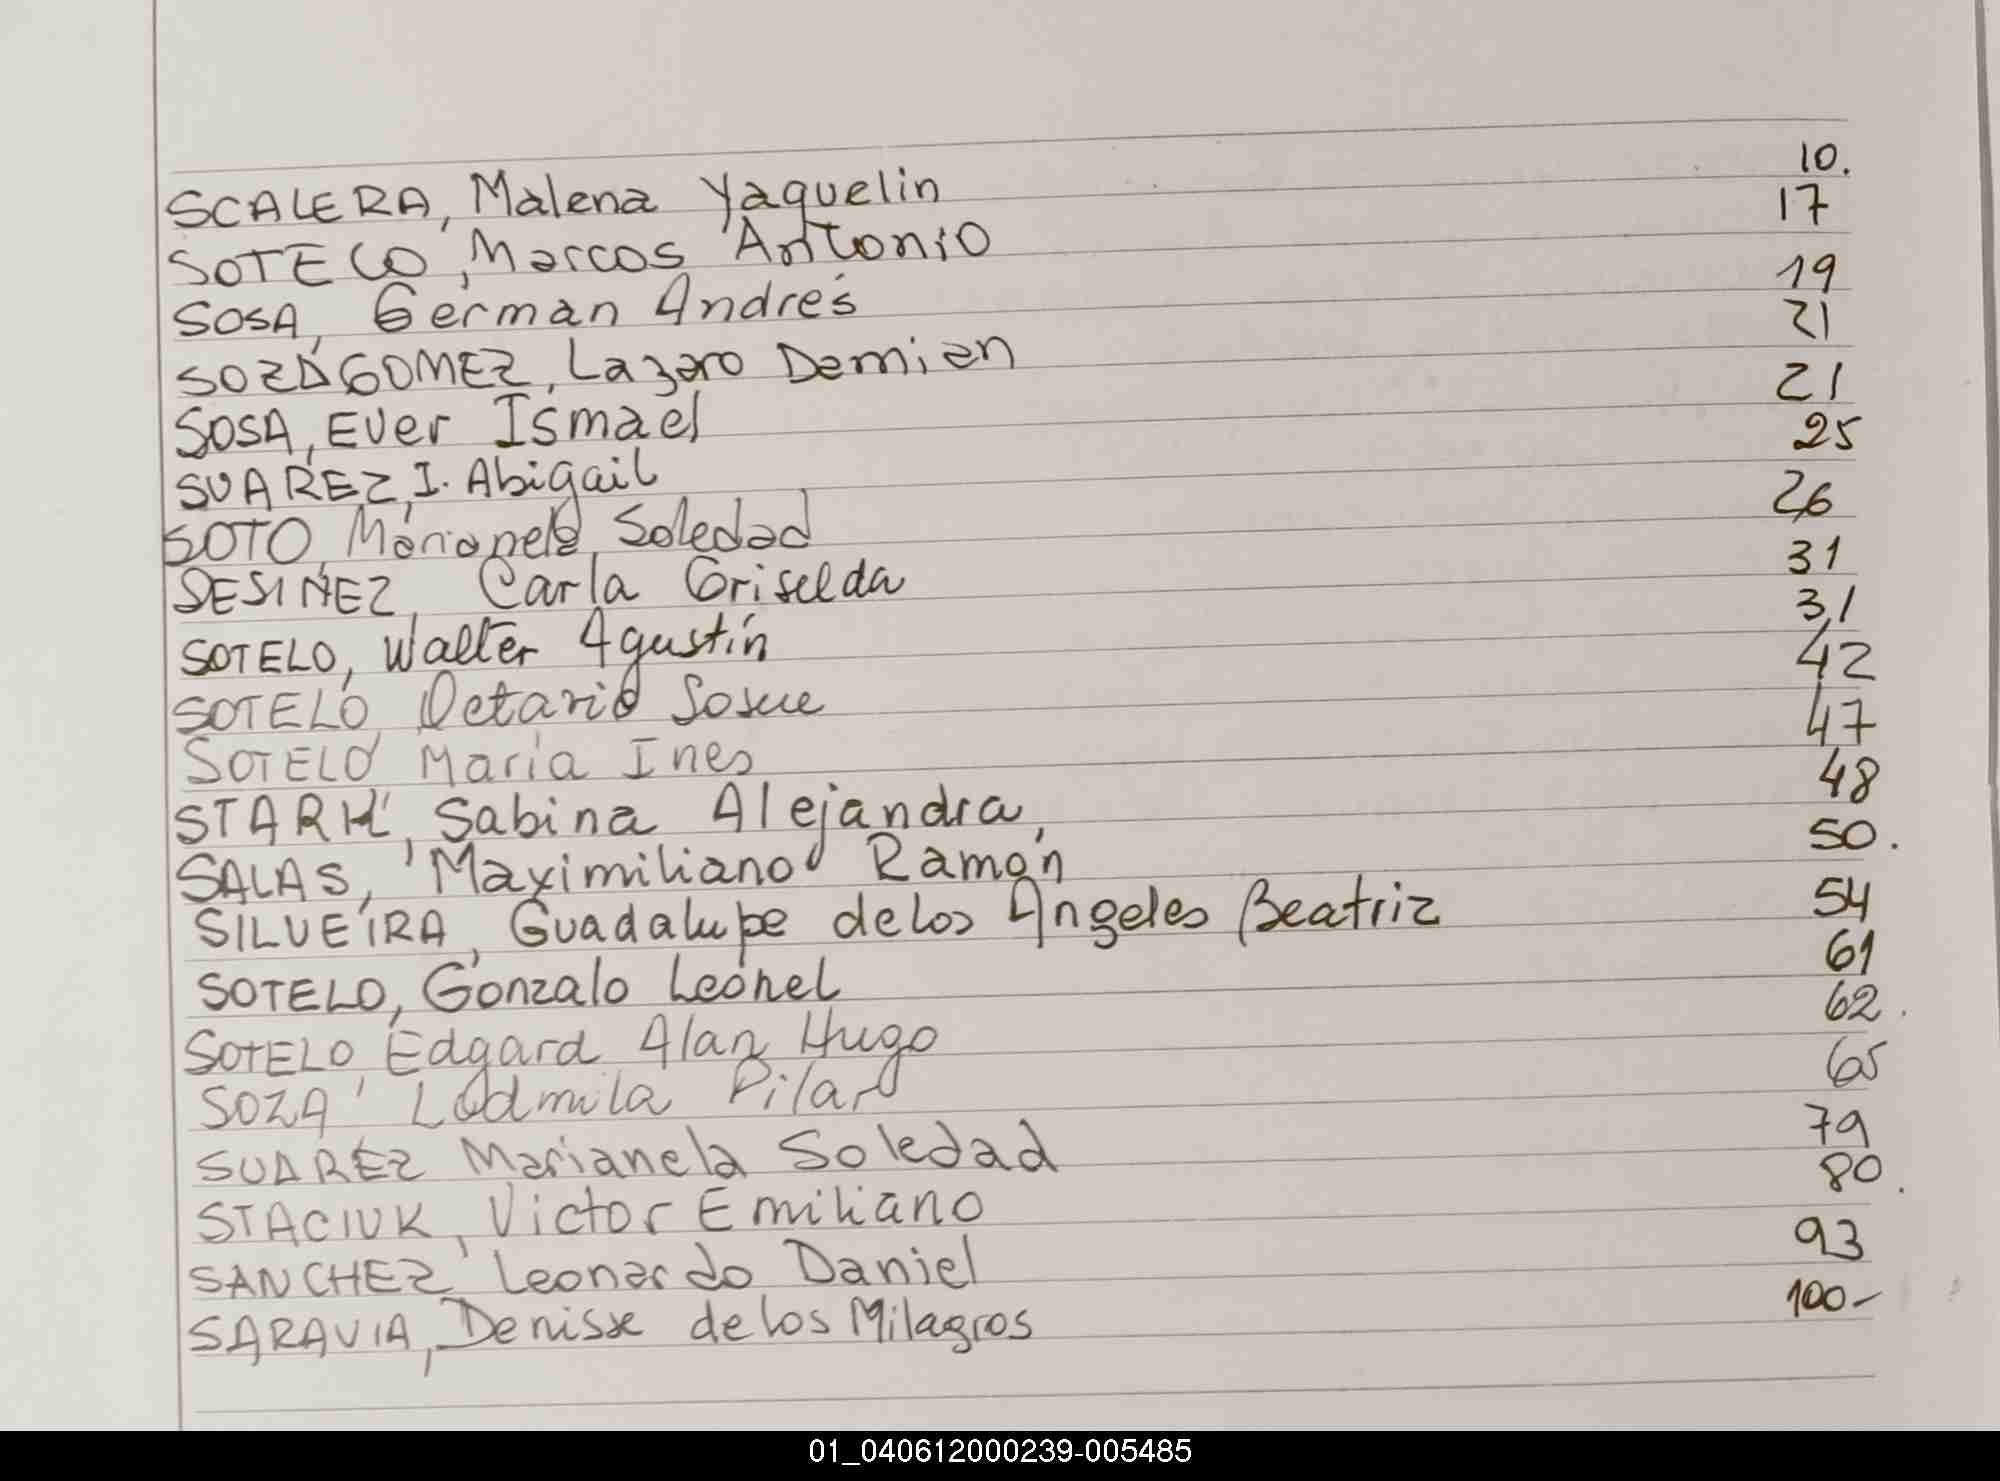 SCALERA, Malena Yaquelin 10.
SOTELO, Marcos Antonio 17
SOSA, German Andrés 19
SOZA GOMEZ, Lazaro Demian 21
SOSA, Ever Ismael 21
SUAREZ, I. Abigail 25
SOTO, Marianela Soledad 26
SESIÑEZ, Carla Griselda 31
SOTELO, Walter Agustín 31
SOTELO, Octavio Josue 42
SOTELO Maria Ines 47
STARK, Sabina Alejandra, 48
SALAS, Maximiliano Ramón 50.
SILVEIRA, Guadalupe de los Angeles Beatriz 54
SOTELO, Gonzalo Leonel 61
SOTELO, Edgard Alan Hugo 62.
SOZA Ludmila Pilar 65
SUAREZ Marianela Soledad 79
STACIUK, Victor Emiliano 80.
SANCHEZ Leonardo Daniel 93
SARAVIA, Denisse de los Milagros 100-
01_040612000239-005485